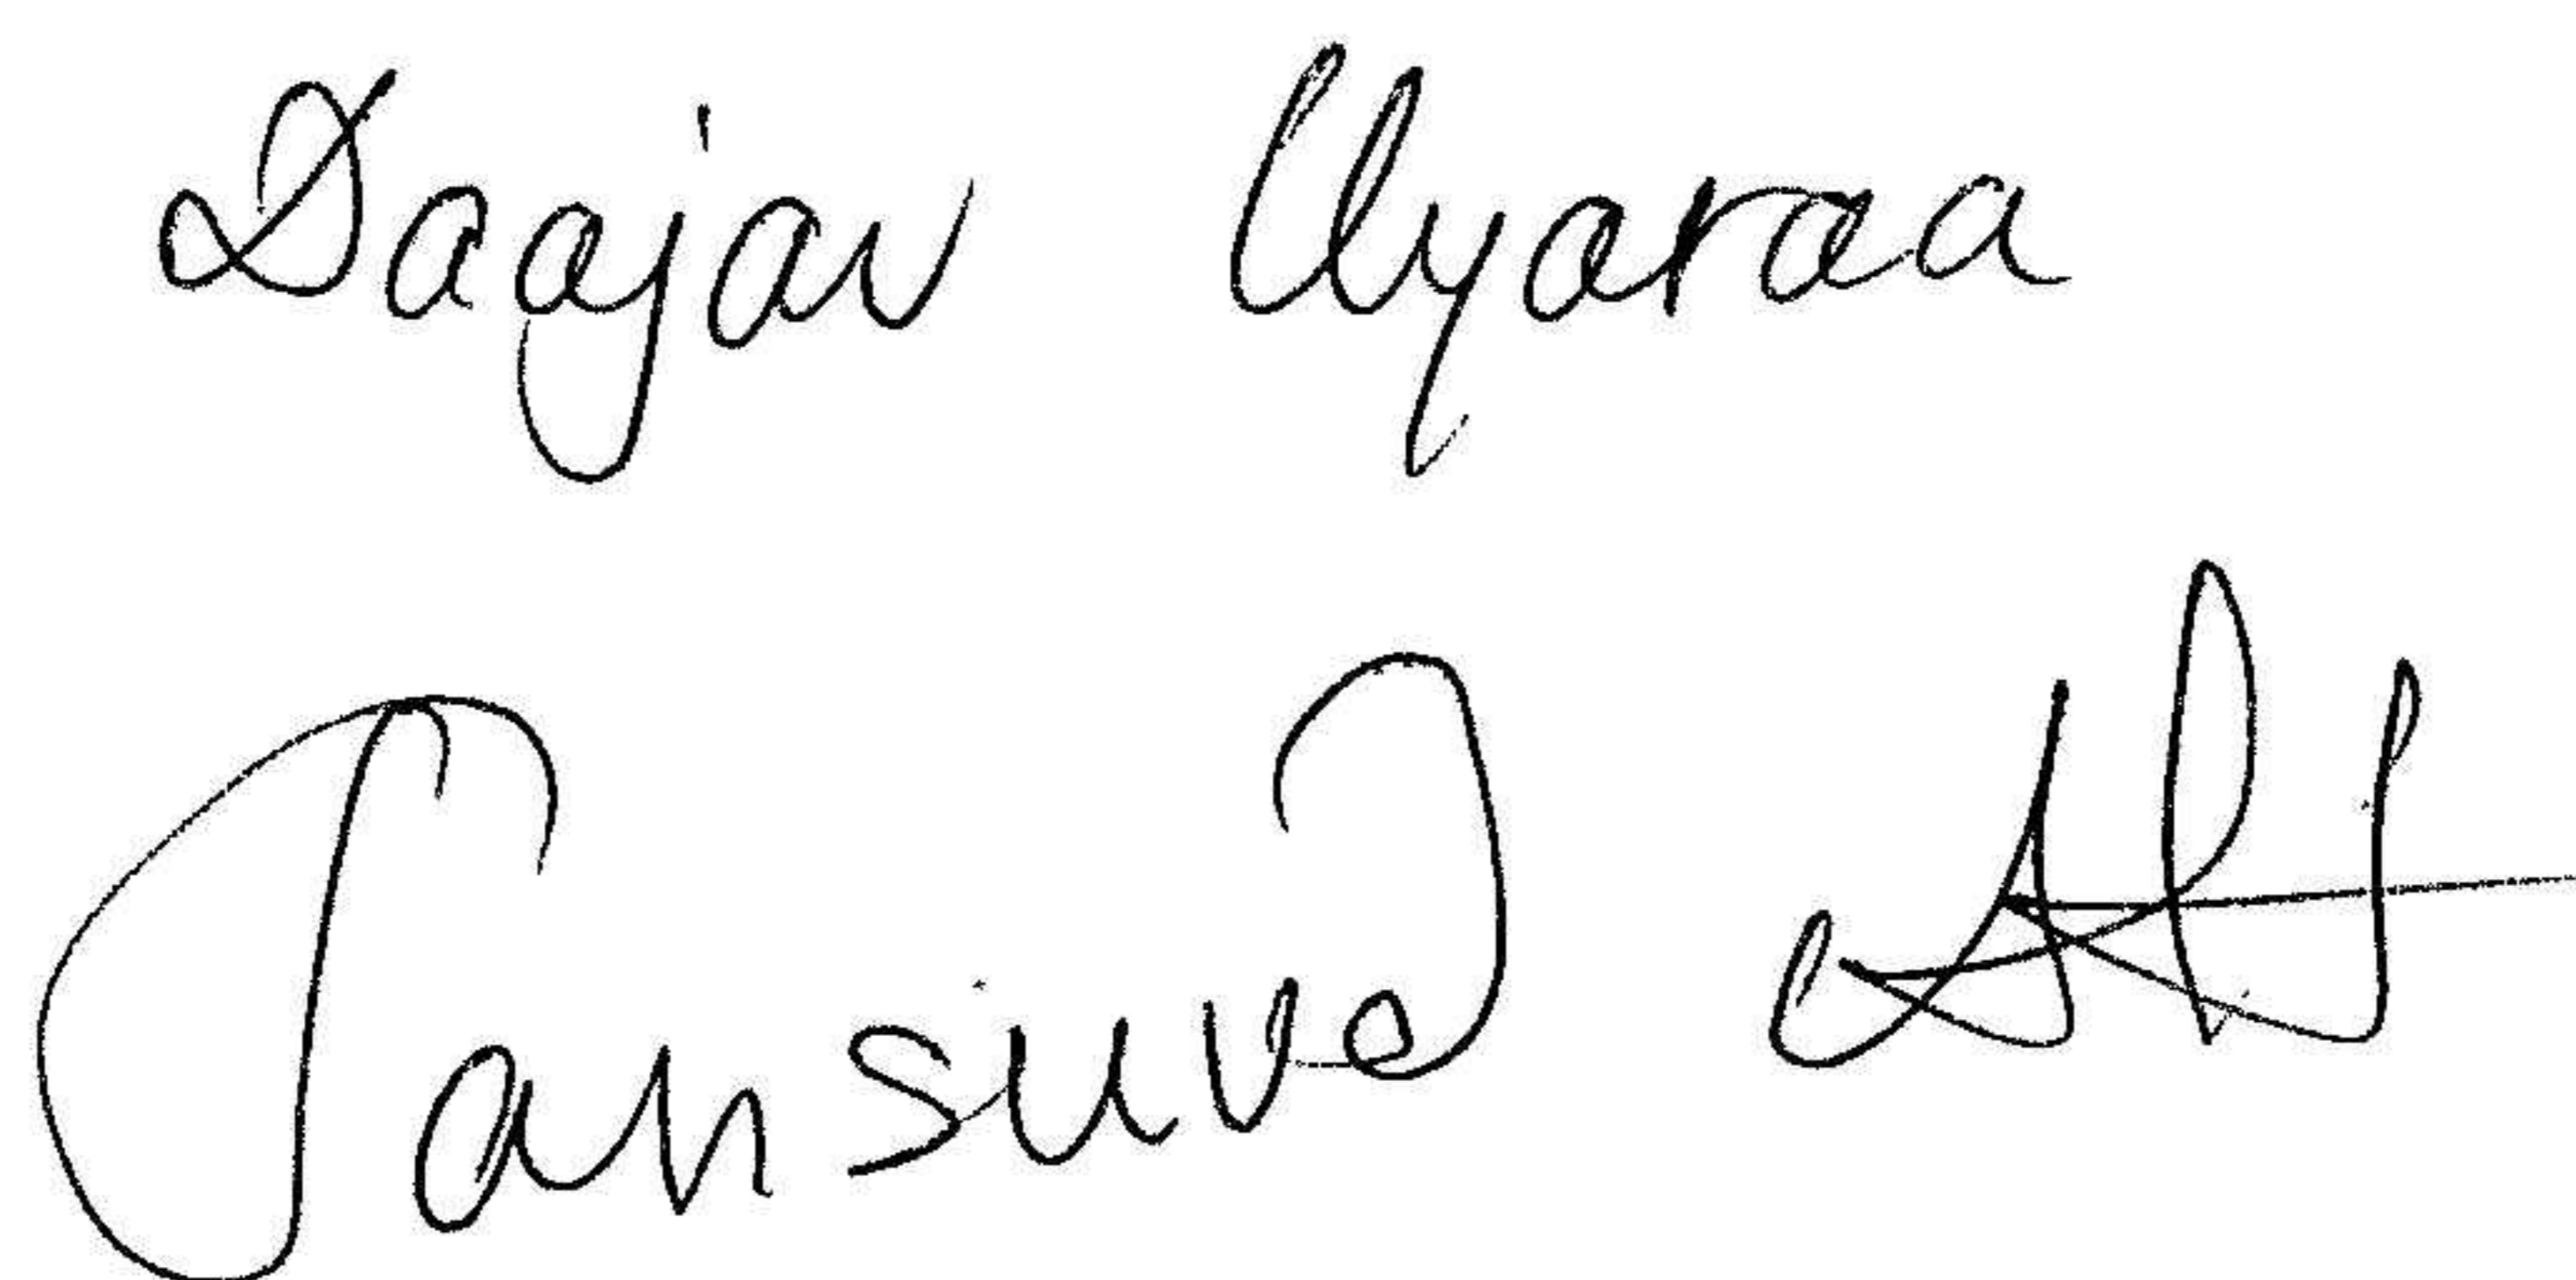 Daajav Uyaraa
Jansuvd